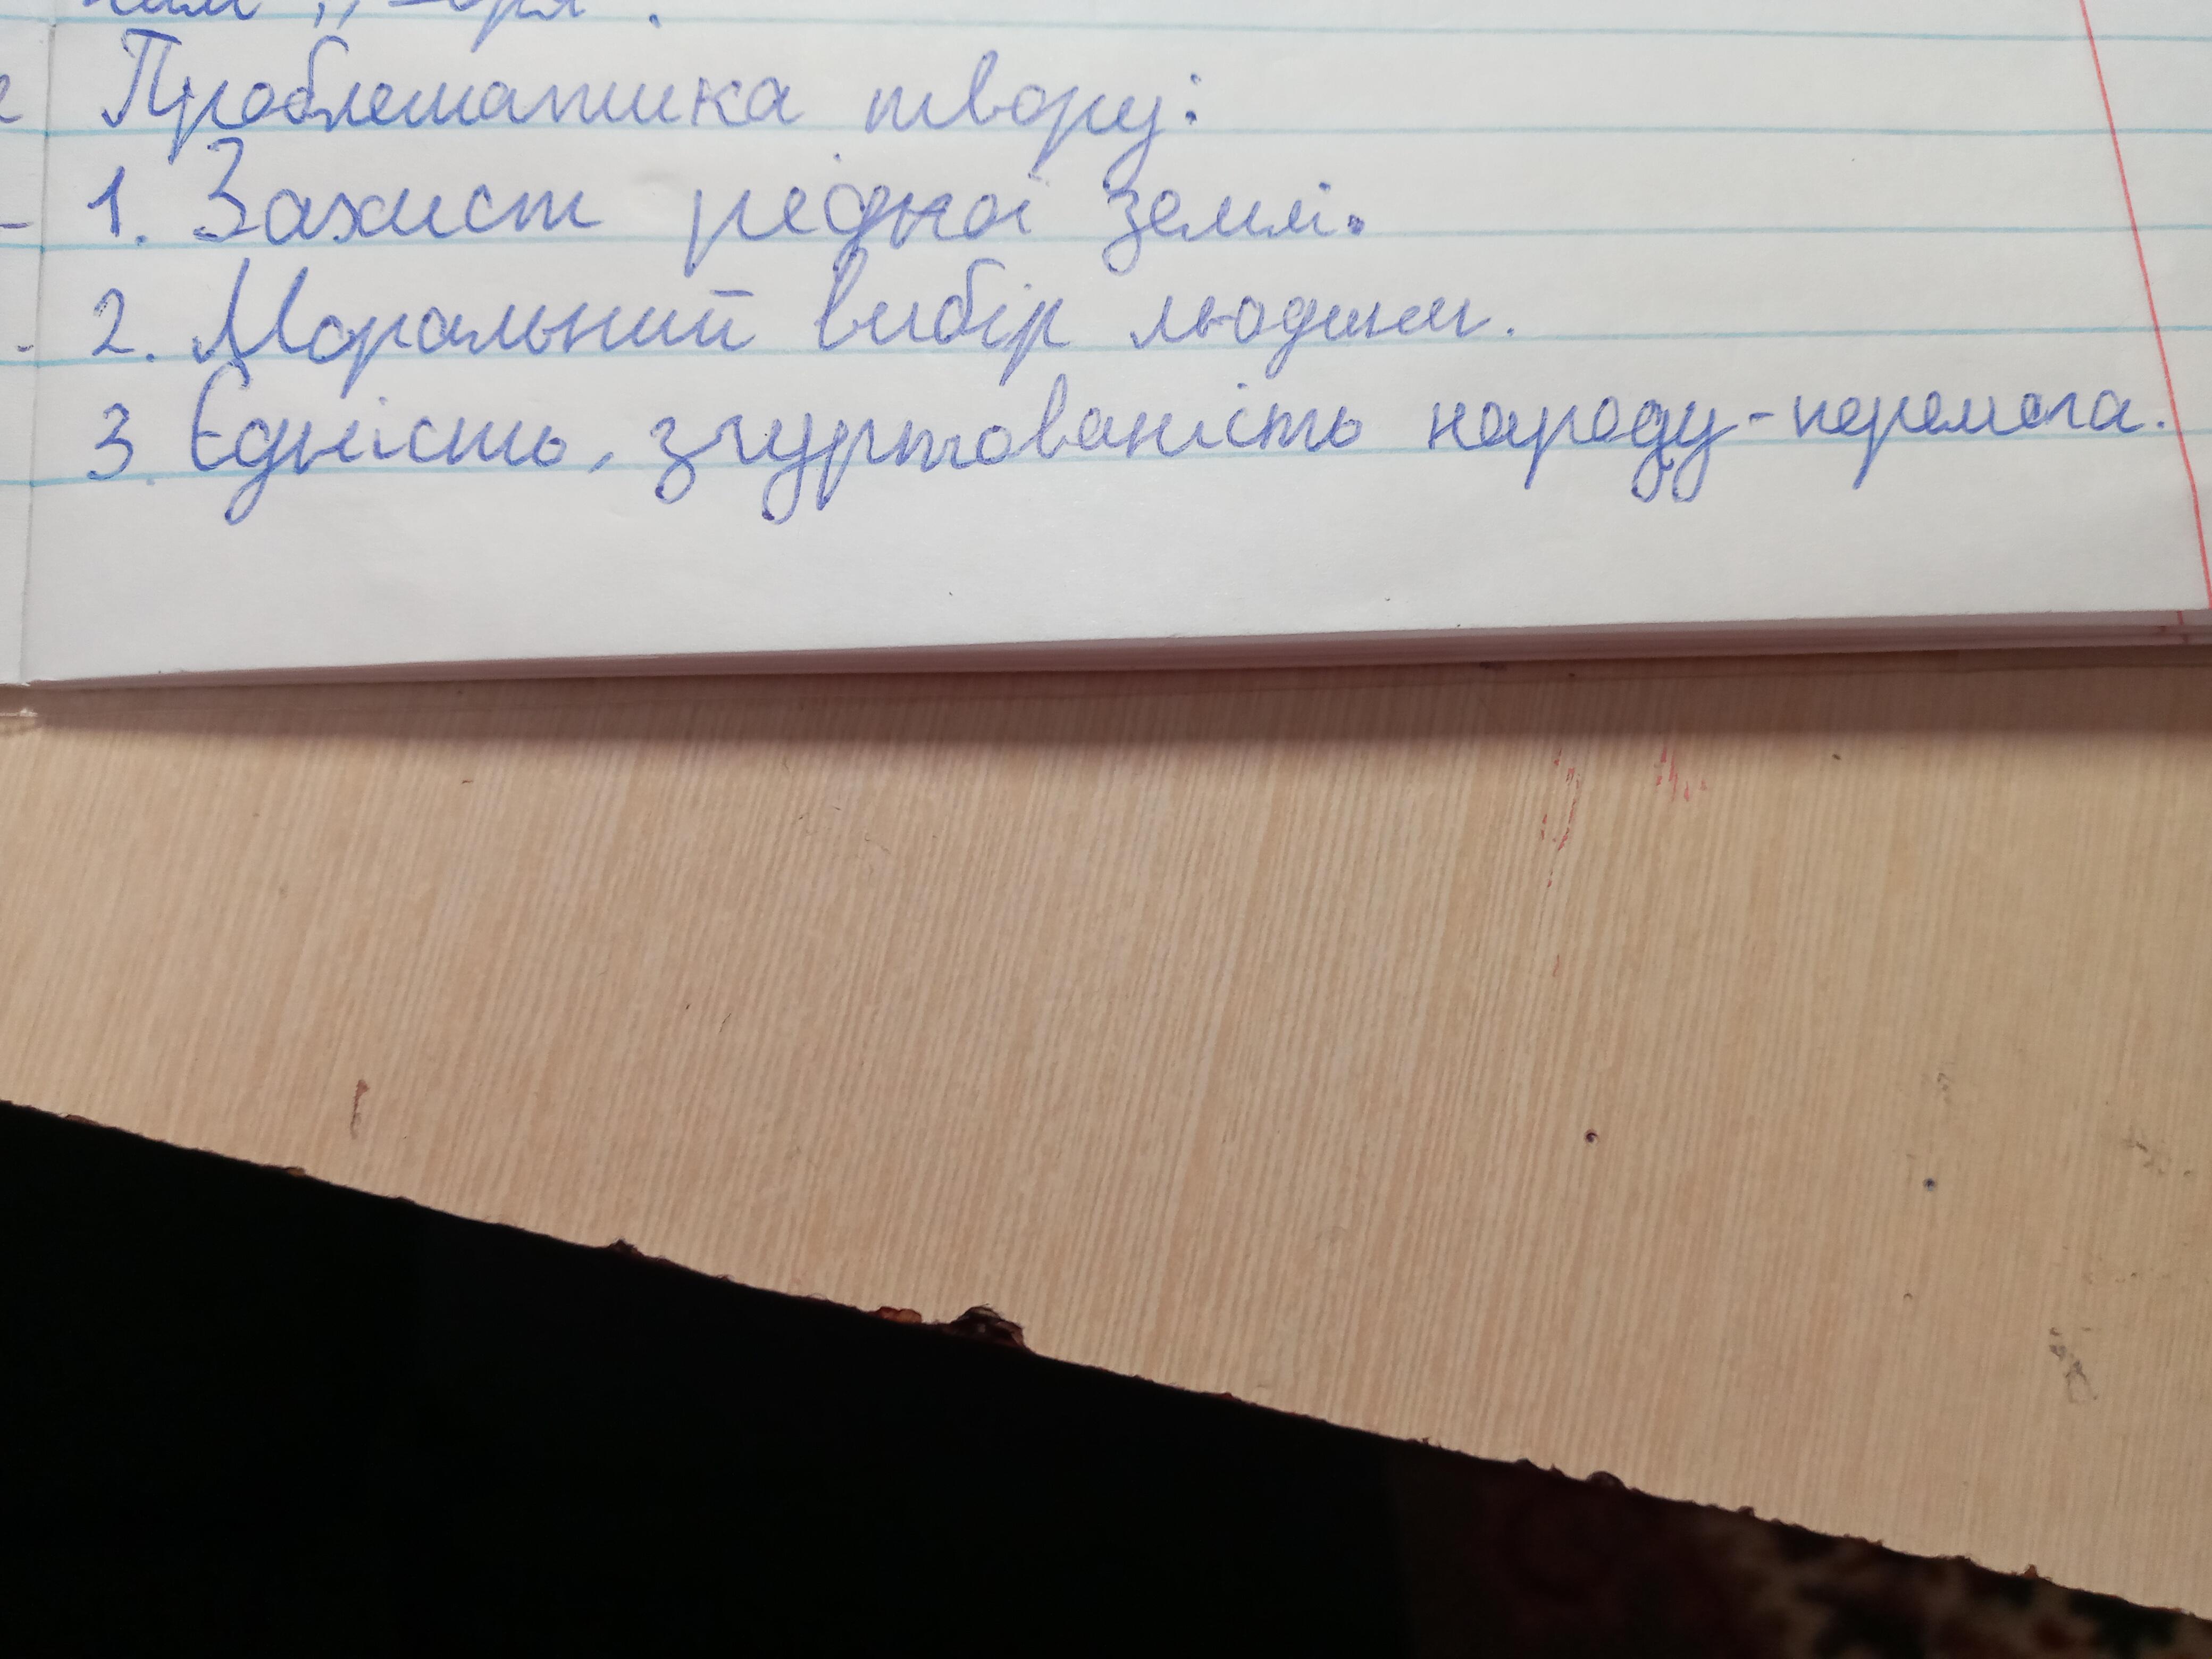 Проблематика твору:
1. Захист рідної землі.
2. Моральний вибір людини.
3. Єдність, згуртованість народу - перемога.